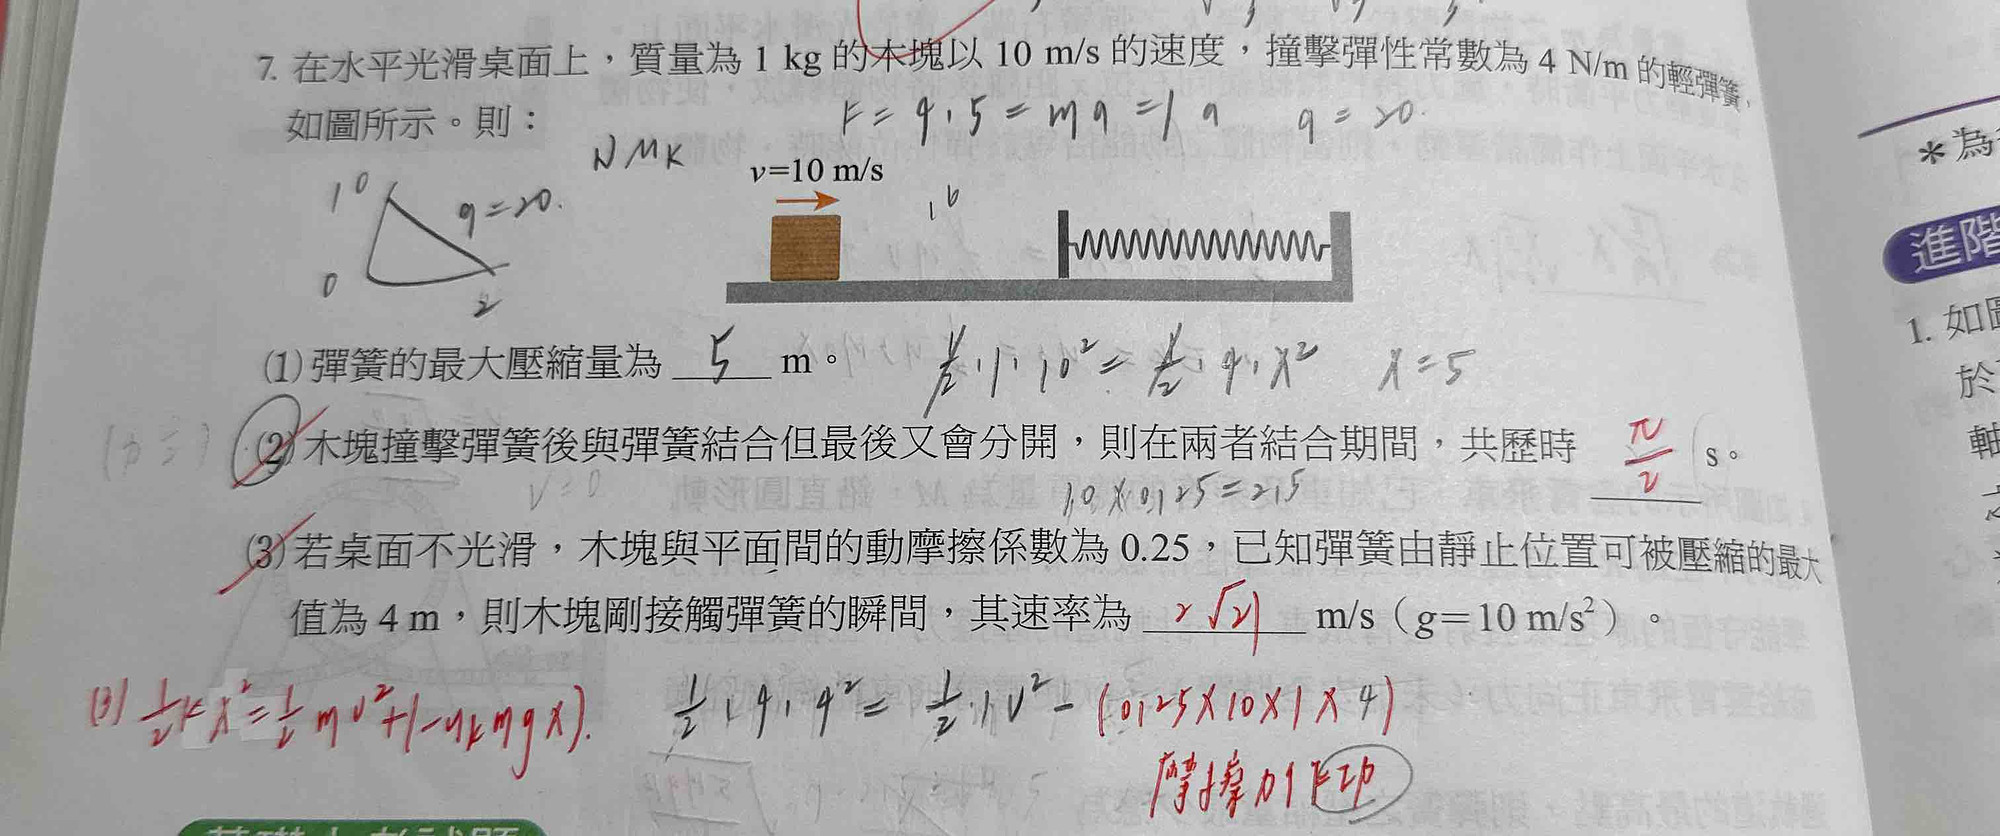 7. 在水平光滑桌面上，質量為 1 kg 的木塊以 10 m/s 的速度，撞擊彈性常數為 4 N/m 的輕彈簧，
如圖所示。則：
F = 4.5 = ma = 1a a = 20.
NMK
v=10 m/s
10
10 a=20.
0
2
(1) 彈簧的最大壓縮量為 5 m。 1/2 · 1 · 10² = 1/2 4 · x² x = 5
(2) 木塊撞擊彈簧後與彈簧結合但最後又會分開，則在兩者結合期間，共歷時 π/2 s。
v = 0
10 × 0.25 = 2.5
(3) 若桌面不光滑，木塊與平面間的動摩擦係數為 0.25，已知彈簧由靜止位置可被壓縮的最大
值為 4 m，則木塊剛接觸彈簧的瞬間，其速率為 2√21 m/s（g＝10 m/s²）。
(3) 1/2 k x² = 1/2 m v² + (-μk mg x). 1/2 · 4 · 4² = 1/2 · 1 v² - (0.25 × 10 × 1 × 4)
摩擦力作功
＊為
進階
1. 如圖
於
軸